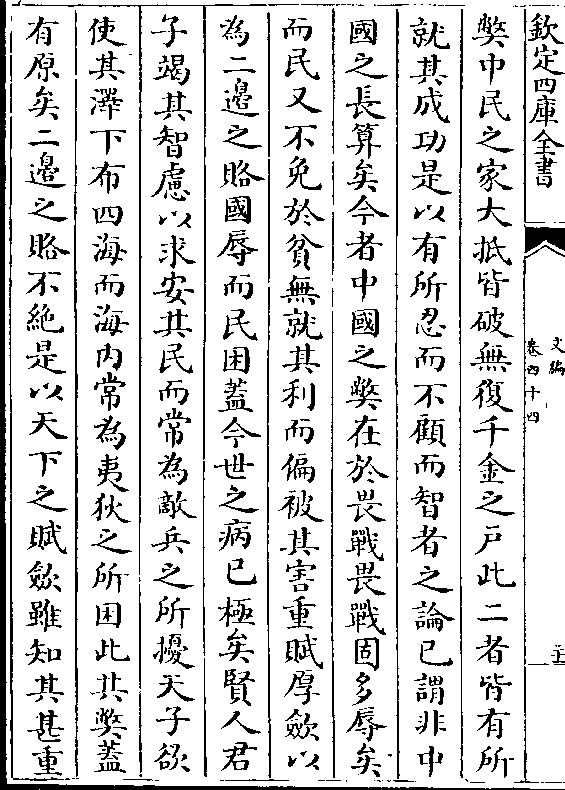 欽定四庫全書
文編
卷四十四
弊中民之家大抵皆破無復千金之户此二者皆有所
就其成功是以有所忍而不顧而智者之論已謂非中
國之長算矣今者中國之弊在於畏戰畏戰固多辱矣
而民又不免於貧無就其利而偏被其害重賦厚歛以
為二邉之賂國辱而民困蓋今世之病已極矣賢人君
子竭其智慮以求安其民而常為敵兵之所擾天子欲
使其澤下布四海而海内常為夷狄之所困此其弊蓋
有原矣二邉之賂不絶是以天下之賦歛雖知其甚重